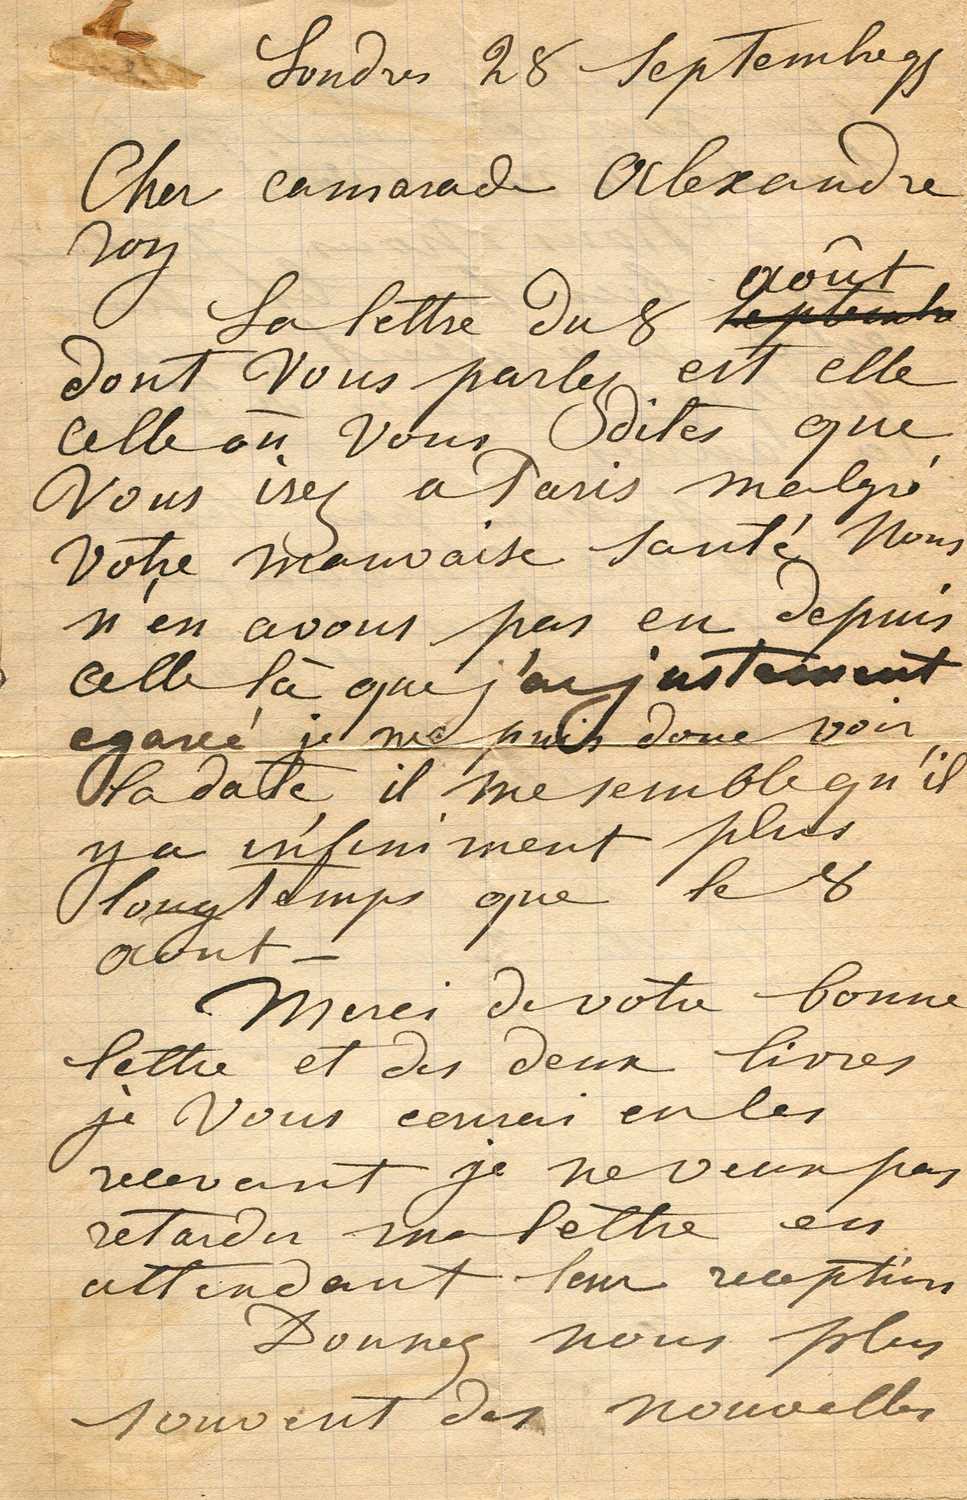 Londres 28 septembre 95
Cher camarade Alexandre
roy
août
La lettre du 8 septembre
dont Vous parlez est elle
celle où Vous dites que
Vous irez a Paris malgré
Votre mauvaise santé, Nous
n'en avons pas eu depuis
celle là que j'ai justement
egareé je ne puis donc voir
la date il me semble qu'il
y a infiniment plus
longtemps que le 8
aout —
Merci de votre bonne
lettre et des deux livres
je Vous ecrirai en les
recevant je ne veux pas
retarder ma lettre en
attendant leur reception
Donnez nous plus
souvent des nouvelles